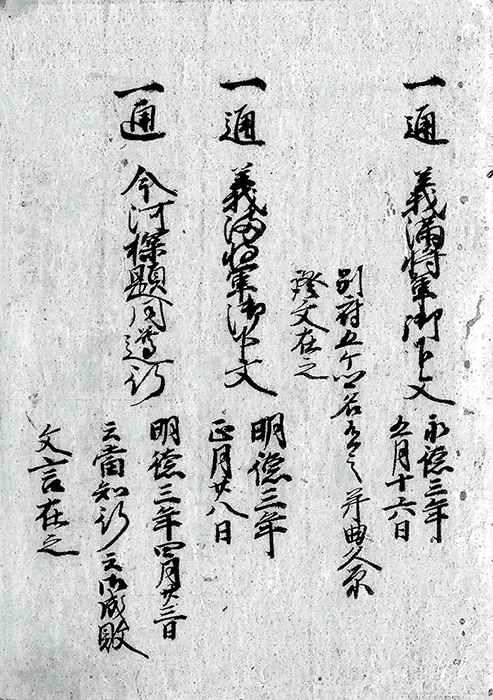 一通 義満将軍御下文
永徳三年
五月十六日
別府五ケ 并曲久原
證文在之
一通 義満将軍御下文
明徳三年
正月廿八日
一通 今河探題同遵行
明徳三年四月廿三日
云當知行云御成敗
文言在之